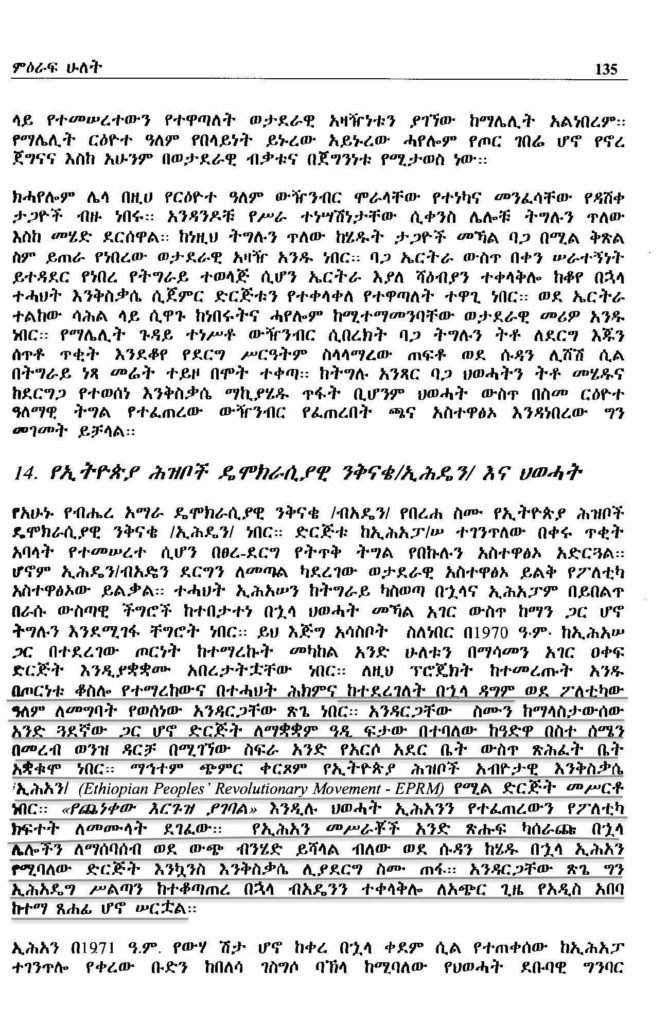 ምዕራፍ ሁለት 135
ላይ የተመሠረተውን የተዋጣለት ወታደራዊ አዛዥነቱን ያገኘው ከማሌሊት አልነበረም።
የማሌሊት ርዕዮተ ዓለም የበላይነት ይኑረው አይኑረው ሓየሎም የጦር ገበሬ ሆኖ የኖረ
ጀግናና እስከ አሁንም በወታደራዊ ብቃቱና በጀግንነቱ የሚታወስ ነው።
ከሓየሎም ሌላ በዚህ የርዕዮተ ዓለም ውዥንብር ሞራላቸው የተነካና መንፈሳቸው የዳሸቀ
ታጋዮች ብዙ ነበሩ። አንዳንዶቹ የሥራ ተነሣሽነታቸው ሲቀንስ ሌሎቹ ትግሉን ጥለው
እስከ መሄድ ደርሰዋል። ከነዚህ ትግሉን ጥለው ከሄዱት ታጋዮች መኻል ባጋ በሚል ቅጽል
ስም ይጠራ የነበረው ወታደራዊ አዛዥ አንዱ ነበር። ባጋ ኤርትራ ውስጥ በቀን ሠራተኝነት
ይተዳደር የነበረ የትግራይ ተወላጅ ሲሆን ኤርትራ እያለ ሻዕብያን ተቀላቅሎ ከቆየ በኋላ
ተሓህት እንቅስቃሴ ሲጀምር ድርጅቱን የተቀላቀለ የተዋጣለት ተዋጊ ነበር። ወደ ኤርትራ
ተልከው ሳሕል ላይ ሲዋጉ ከነበሩትና ሓየሎም ከሚተማመንባቸው ወታደራዊ መሪዎ አንዱ
ነበር። የማሌሊት ጉዳይ ተነሥቶ ውዥንብር ሲበረክት ባጋ ትግሉን ትቶ ለደርግ እጁን
ሰጥቶ ጥቂት እንደቆየ የደርግ ሥርዓትም ስላላማረው ጠፍቶ ወደ ሱዳን ሊሸሽ ሲል
በትግራይ ነጻ መሬት ተይዞ በሞት ተቀጣ። ከትግሉ አንጻር ባጋ ህወሓትን ትቶ መሄዱና
ከደርግጋ የተወሰነ እንቅስቃሴ ማኪያሄዱ ጥፋት ቢሆንም ህወሓት ውስጥ በስመ ርዕዮተ
ዓለማዊ ትግል የተፈጠረው ውዥንብር የፈጠረበት ጫና አስተዋፅኦ እንዳነበረው ግን
መገመት ይቻላል።
14. የኢትዮጵያ ሕዝቦች ዴሞክራሲያዊ ንቅናቄ/ኢሕዴን/ እና ህወሓት
የአሁኑ የብሔረ አማራ ዴሞክራሲያዊ ንቅናቄ /ብአዴን/ የበረሐ ስሙ የኢትዮጵያ ሕዝቦች
ዴሞክራሲያዊ ንቅናቄ /ኢሕዴን/ ነበር። ድርጅቱ ከኢሕአፓ/ሠ ተገንጥለው በቀሩ ጥቂት
አባላት የተመሠረተ ሲሆን በፀረ-ደርግ የትጥቅ ትግል የበኩሉን አስተዋፅኦ አድርጓል።
ሆኖም ኢሕዴን/ብአዴን ደርግን ለመጣል ካደረገው ወታደራዊ አስተዋፅኦ ይልቅ የፖለቲካ
አስተዋፅኦው ይልቃል። ተሓህት ኢሕአሠን ከትግራይ ካስወጣ በኋላና ኢሕአፓም በይበልጥ
በራሱ ውስጣዊ ችግሮች ከተበታተነ በኋላ ህወሓት መኻል አገር ውስጥ ከማን ጋር ሆኖ
ትግሉን እንደሚገፋ ቸግሮት ነበር። ይህ እጅግ አሳስቦት ስለነበር በ1970 ዓ.ም. ከኢሕአሠ
ጋር በተደረገው ጦርነት ከተማረኩት መካከል አንድ ሁለቱን በማሳመን አገር ዐቀፍ
ድርጅት እንዲያቋቋሙ አበረታትቷቸው ነበር። ለዚህ ፕሮጄክት ከተመረጡት አንዱ
በጦርነቱ ቆስሎ የተማረከውና በተሓህት ሕክምና ከተደረገለት በኋላ ዳግም ወደ ፖለቲካው
ዓለም ለመግባት የወሰነው አንዳርጋቸው ጽጌ ነበር። አንዳርጋቸው ስሙን ከማላስታውሰው
አንድ ጓደኛው ጋር ሆኖ ድርጅት ለማቋቋም ዓዲ ፍታው በተባለው ከዓድዋ በስተ ሰሜን
በመረብ ወንዝ ዳርቻ በሚገኘው ስፍራ አንድ የአርሶ አደር ቤት ውስጥ ጽሕፈት ቤት
አቋቁሞ ነበር። ማኅተም ጭምር ቀርጾም የኢትዮጵያ ሕዝቦች አብዮታዊ እንቅስቃሴ
/ኢሕአን/ (Ethiopian Peoples' Revolutionary Movement - EPRM) የሚል ድርጅት መሥርቶ
ነበር። «የጨነቀው እርጉዝ ያገባል» እንዲሉ ህወሓት ኢሕአንን የተፈጠረውን የፖለቲካ
ክፍተት ለመሙላት ደገፈው። የኢሕአን መሥራቾች አንድ ጽሑፍ ካሠራጩ በኋላ
ሌሎችን ለማሰባሰብ ወደ ውጭ ብንሄድ ይሻላል ብለው ወደ ሱዳን ከሄዱ በኋላ ኢሕአን
የሚባለው ድርጅት እንኳንስ እንቅስቃሴ ሊያደርግ ስሙ ጠፋ። አንዳርጋቸው ጽጌ ግን
ኢሕአዴግ ሥልጣን ከተቆጣጠረ በኋላ ብአዴንን ተቀላቅሎ ለአጭር ጊዜ የአዲስ አበባ
ከተማ ጸሐፊ ሆኖ ሠርቷል።
ኢሕአን በ1971 ዓ.ም. የውሃ ሽታ ሆኖ ከቀረ በኋላ ቀደም ሲል የተጠቀሰው ከኢሕአፓ
ተገንጥሎ የቀረው ቡድን ከበለሳ ገስግሶ ባኽላ ከሚባለው የህወሓት ደቡባዊ ግንባር